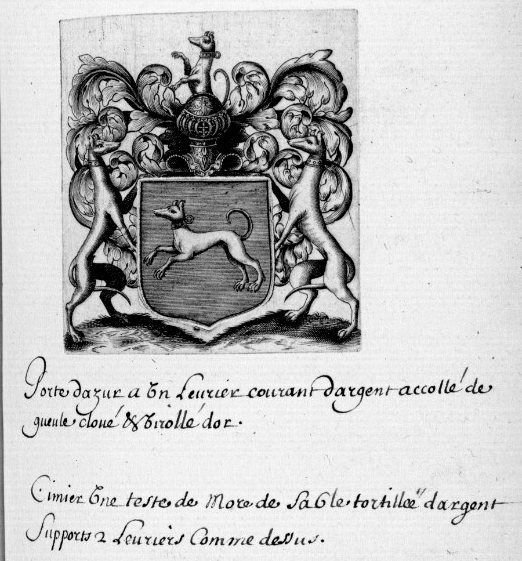 Porte dazur a Un Leurier courant dargent accollé de
gueule cloué & virollé dor.
Cimier Une teste de More de Sable tortilleé dargent
Supports 2 Leuriers Comme dessus.